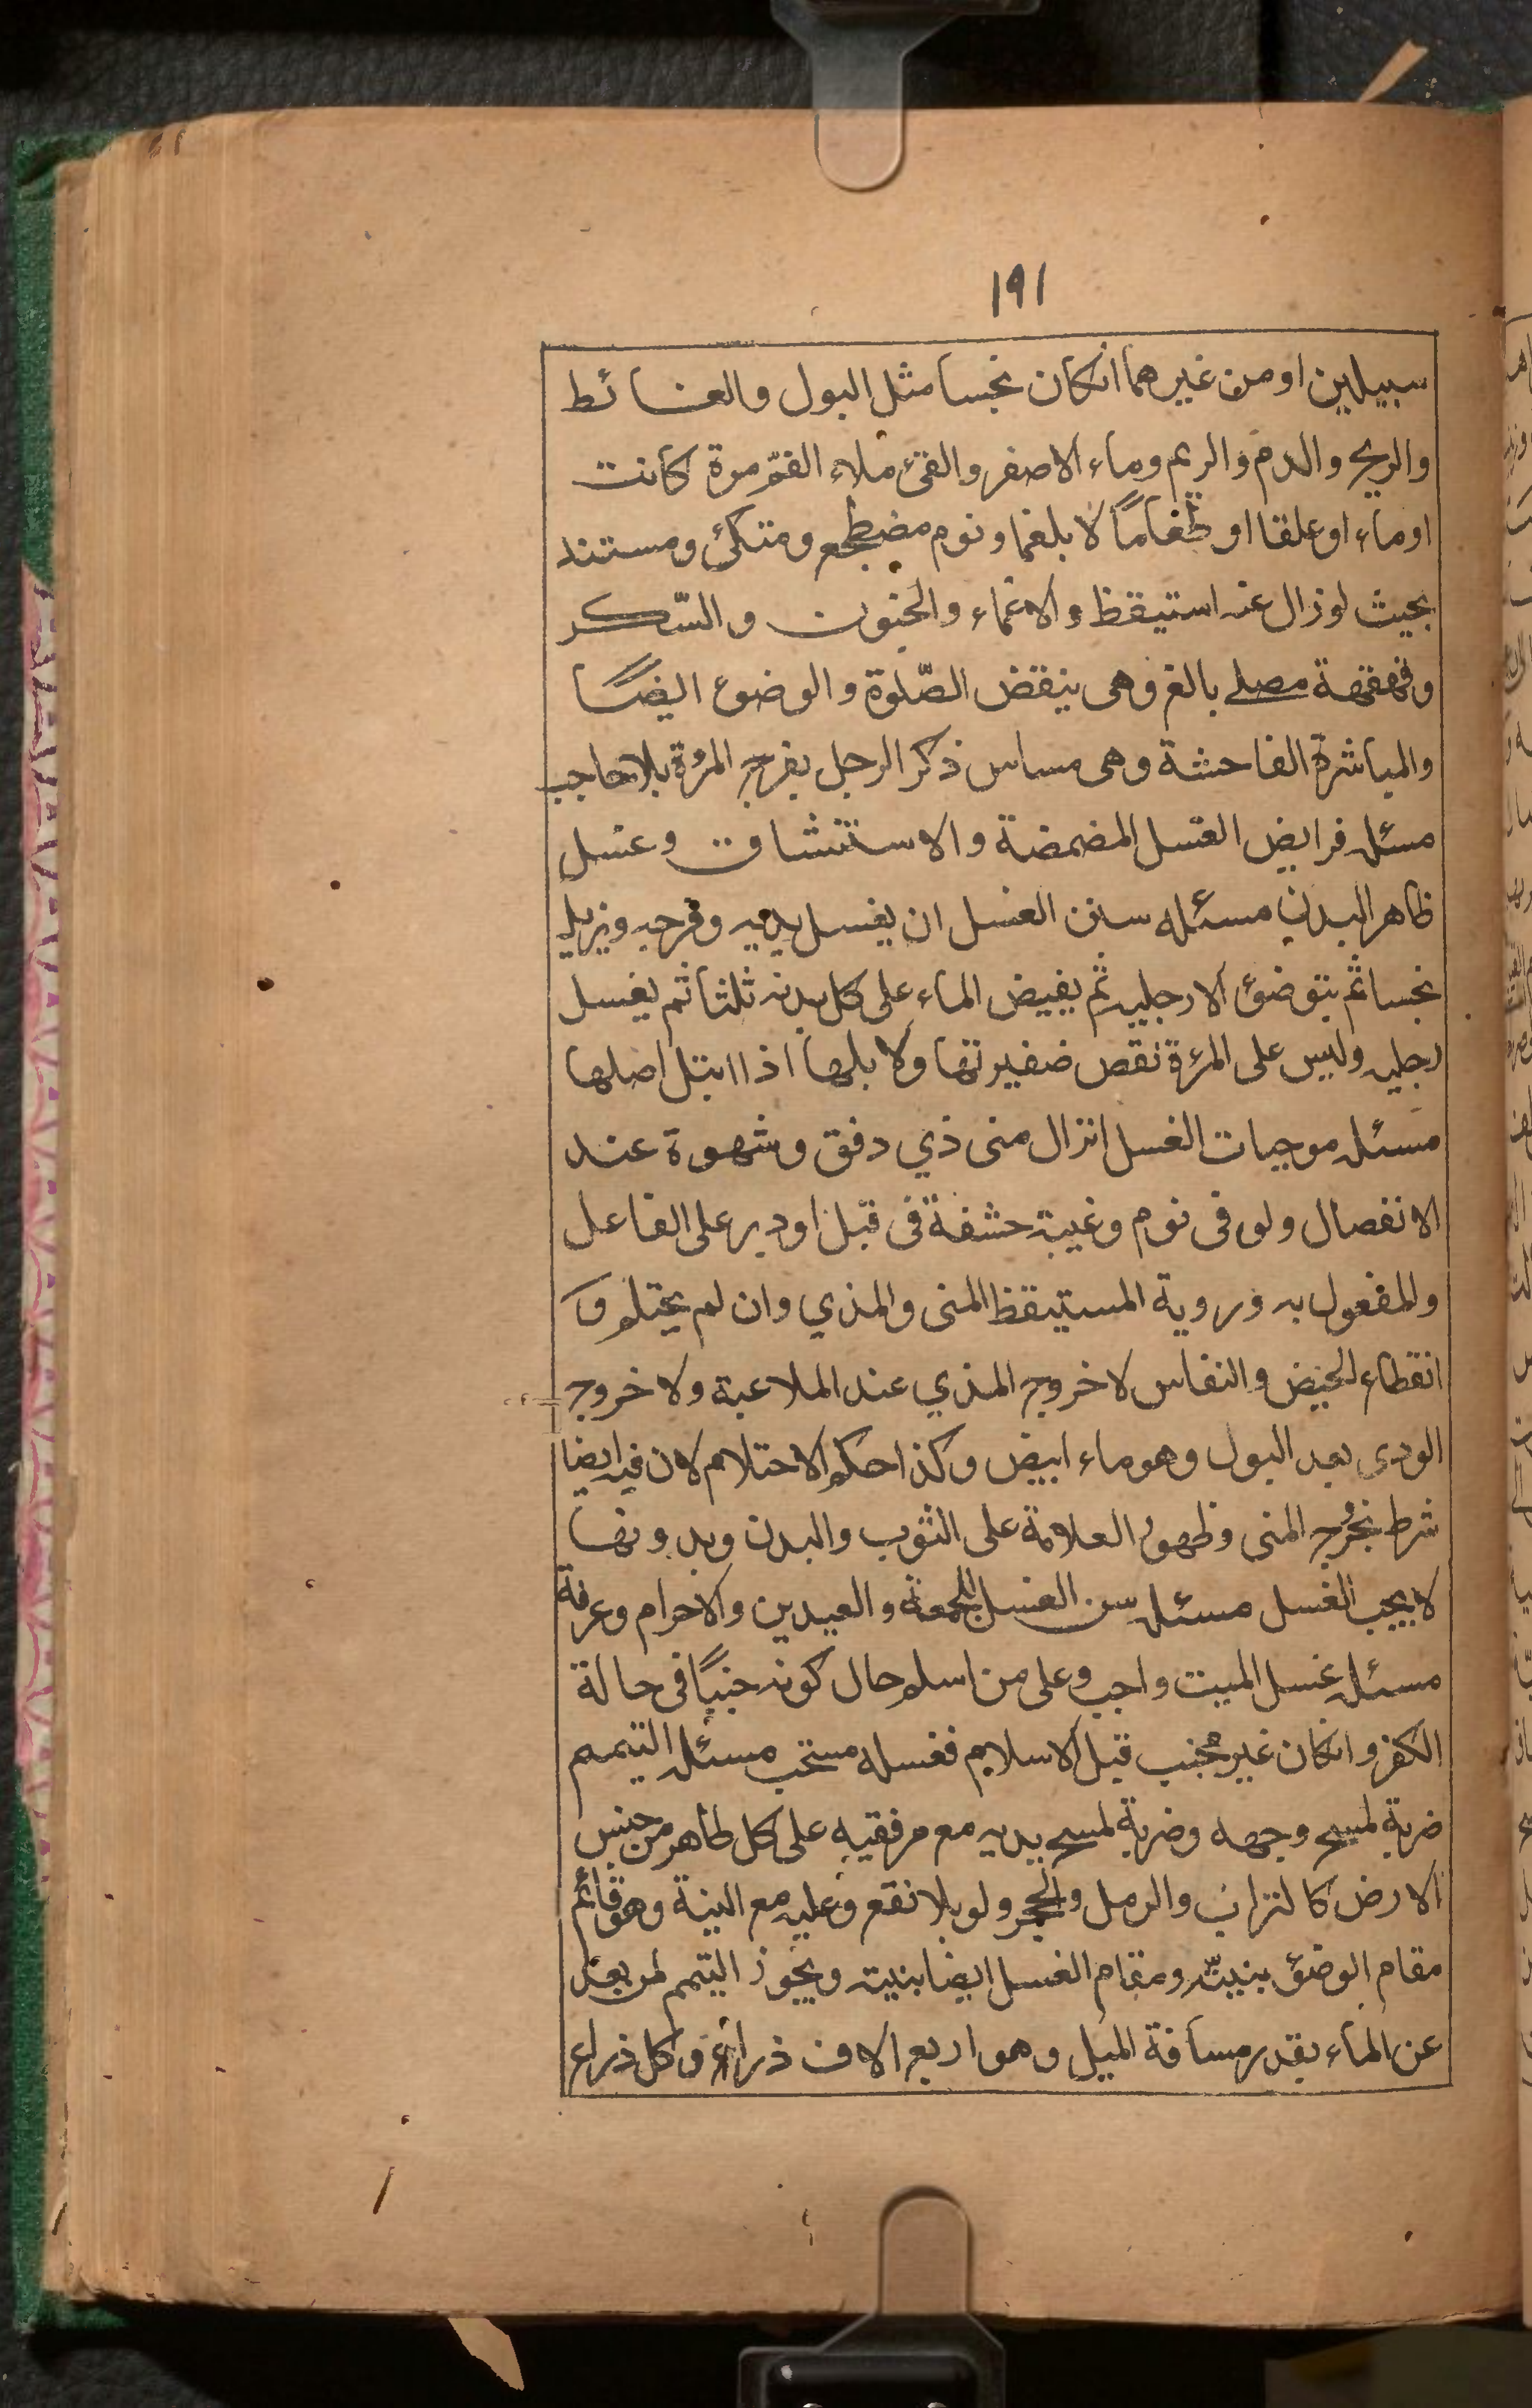 ١٩١
سبيلين او من غيرهما انكان نجسا مثل البول والغائط
والريح والدم والريم وماء الاصفر والقئ ملاء الفم مرة كانت
او ماء او علقا او طعاماً لا بلغما ونوم مضطجع ومتكئ ومستند
بحيث لو زال عنه استيقظ والاغماء والجنون والسّكر
وقهقهة مصلے بالغ وهى ينقض الصّلوة والوضوء ايضًا
والمباشرة الفاحشة وهى مساس ذكر الرجل بفرج المرْة بلا حاجب
مسئله فرايض الغسل المضمضة والاستنشاق وغسل
ظاهر البدن مسئله سنن الغسل ان يغسل يديه وفرجه ويزيل
نجسا ثم يتوضئ الا رجليه ثم يفيض الماء على كل بدنه ثلثا ثم يغسل
رجليه وليس على المرءة نقص ضفيرتها ولا بلها اذا ابتل اصلها
مسئله موجبات الغسل انزال منى ذي دفق وشهوة عند
الانفصال ولو فى نوم وغيبة حشفة فى قبل او دبر على الفاعل
والمفعول به وروية المستيقظ المنى والمذي وان لم يحتلم و
انقطاع الحيض والنفاس لا خروج المذي عند الملاعبة ولا خروج
الودى بعد البول وهو ماء ابيض وكذا حكم الاحتلام لان فيه ايضا
شرط بخروج المنى وظهور العلامة على الثوب والبدن وبدونها
لا يجب الغسل مسئله سن الغسل للجمعة والعيدين والاحرام وعرفة
مسئله غسل الميت واجب وعلى من اسلم حال كونه جنبًا فى حالة
الكفر وانكان غير مجنب قبل الاسلام فغسله مستحب مسئله التيمم
ضربة لمسح وجهه وضربة لمسح يديه مع مرفقيه على كل طاهر من جنس
الارض كالتراب والرمل والحجر ولو بلا نقع وعليه مع النية وهو قائم
مقام الوضئ بنيته ومقام الغسل ايضا بنيته ويجوز التيمم لمن بعد
عن الماء بقدر مسافة الميل وهو اربع الاف ذراع وكل ذراع